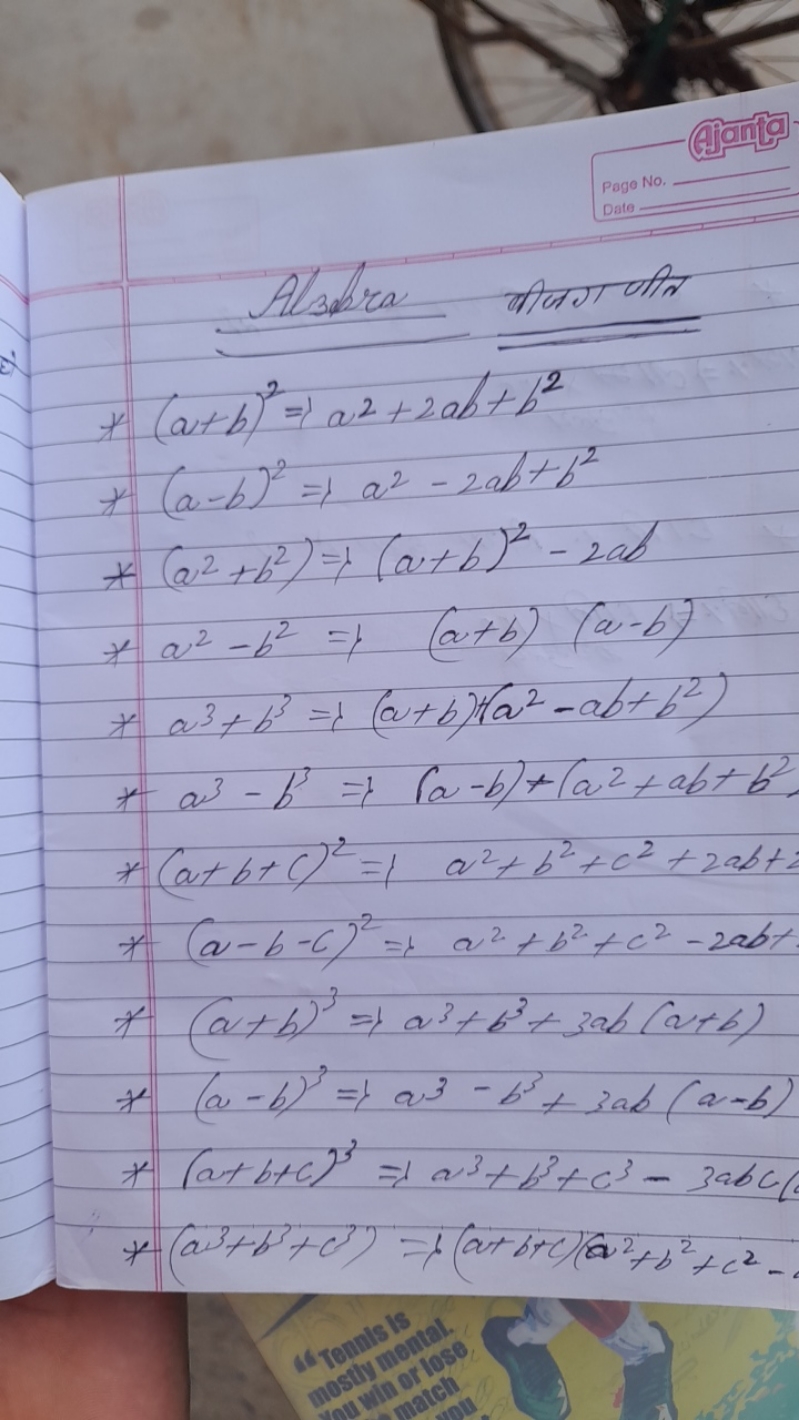 Ajanta
Page No.
Date
Algebra बीजगणीत
* (a+b)² => a² + 2ab + b²
* (a-b)² => a² - 2ab + b²
* (a² + b²) => (a+b)² - 2ab
* a² - b² => (a+b) (a-b)
* a³ + b³ => (a+b)+(a² - ab + b²)
* a³ - b³ => (a-b)+(a² + ab + b²)
* (a+b+c)² => a² + b² + c² + 2ab + 2
* (a-b-c)² => a² + b² + c² - 2ab +
* (a+b)³ => a³ + b³ + 3ab (a+b)
* (a-b)³ => a³ - b³ + 3ab (a-b)
* (a+b+c)³ => a³ + b³ + c³ - 3abc(
* (a³ + b³ + c³) => (a+b+c)(a² + b² + c² -
“Tennis is
mostly mental.
You win or lose
match
you